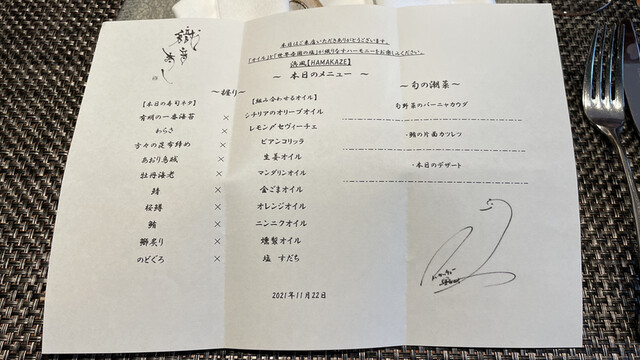 本日はご来店いただきありがとうございます。
「オイル」と「世界各国の塩」が織りなすハーモニーをお楽しみください。
浜風【HAMAKAZE】
～ 本日のメニュー ～
～握り～
【本日の寿司ネタ】 【組み合わせるオイル】
有明の一番海苔 × シチリアのオリーブオイル
わらさ × レモン〆セヴィーチェ
方々の昆布締め × ビアンコリッラ
あおり烏賊 × 生姜オイル
牡丹海老 × マンダリンオイル
鯖 × 金ごまオイル
桜鱒 × オレンジオイル
鮪 × ニンニクオイル
鰤炙り × 燻製オイル
のどぐろ × 塩 すだち
～ 旬の潮菜 ～
旬野菜のバーニャカウダ
・鮪の片面カツレツ
・本日のデザート
2021年11月22日